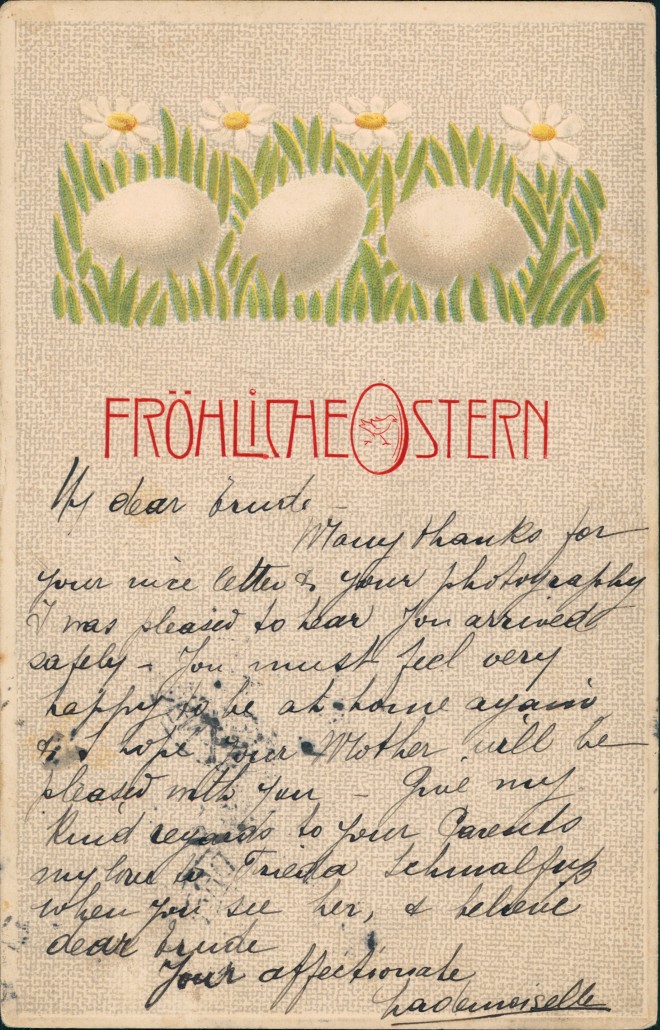 FRÖHLICHE OSTERN
My dear Trude –
Many thanks for
your nice letter & your photography
I was pleased to hear you arrived
safely – You must feel very
happy to be at home again
& I hope your Mother will be
pleased with you – Give my
kind regards to your Parents
my love to Frieda Schmalfuß
when you see her, & believe
dear Trude
Your affectionate
Mademoiselle